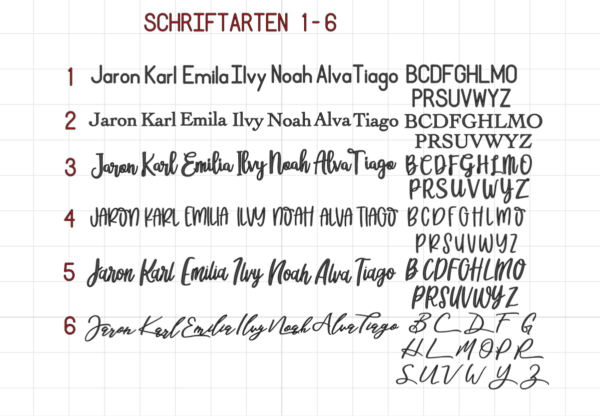 SCHRIFTARTEN 1-6
1 Jaron Karl Emila Ilvy Noah Alva Tiago BCDFGHLMO
PRSUVWYZ
2 Jaron Karl Emila Ilvy Noah Alva Tiago BCDFGHLMO
PRSUVWYZ
3 Jaron Karl Emilia Ilvy Noah Alva Tiago BCDFGHLMO
PRSUVWYZ
4 JARON KARL EMILIA ILVY NOAH ALVA TIAGO BCDFGHLMO
PRSUVWYZ
5 Jaron Karl Emilia Ilvy Noah Alva Tiago BCDFGHLMO
PRSUVWYZ
6 Jaron Karl Emilia Ilvy Noah Alva Tiago B C D F G
H L M O P R
S U V W Y Z